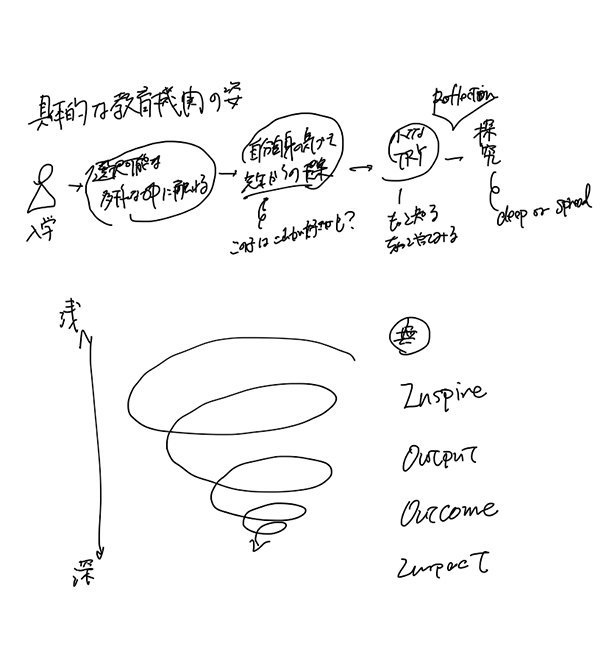 具体的な教育機関の姿
入学
選択可能な
多様な中に触れる
自分自身の気付き
先生からの
この子はこれが好きかも?
TRY
もっと知る
Reflection
探究
deep or spread
浅
深
Inspire
Output
Outcome
Impact